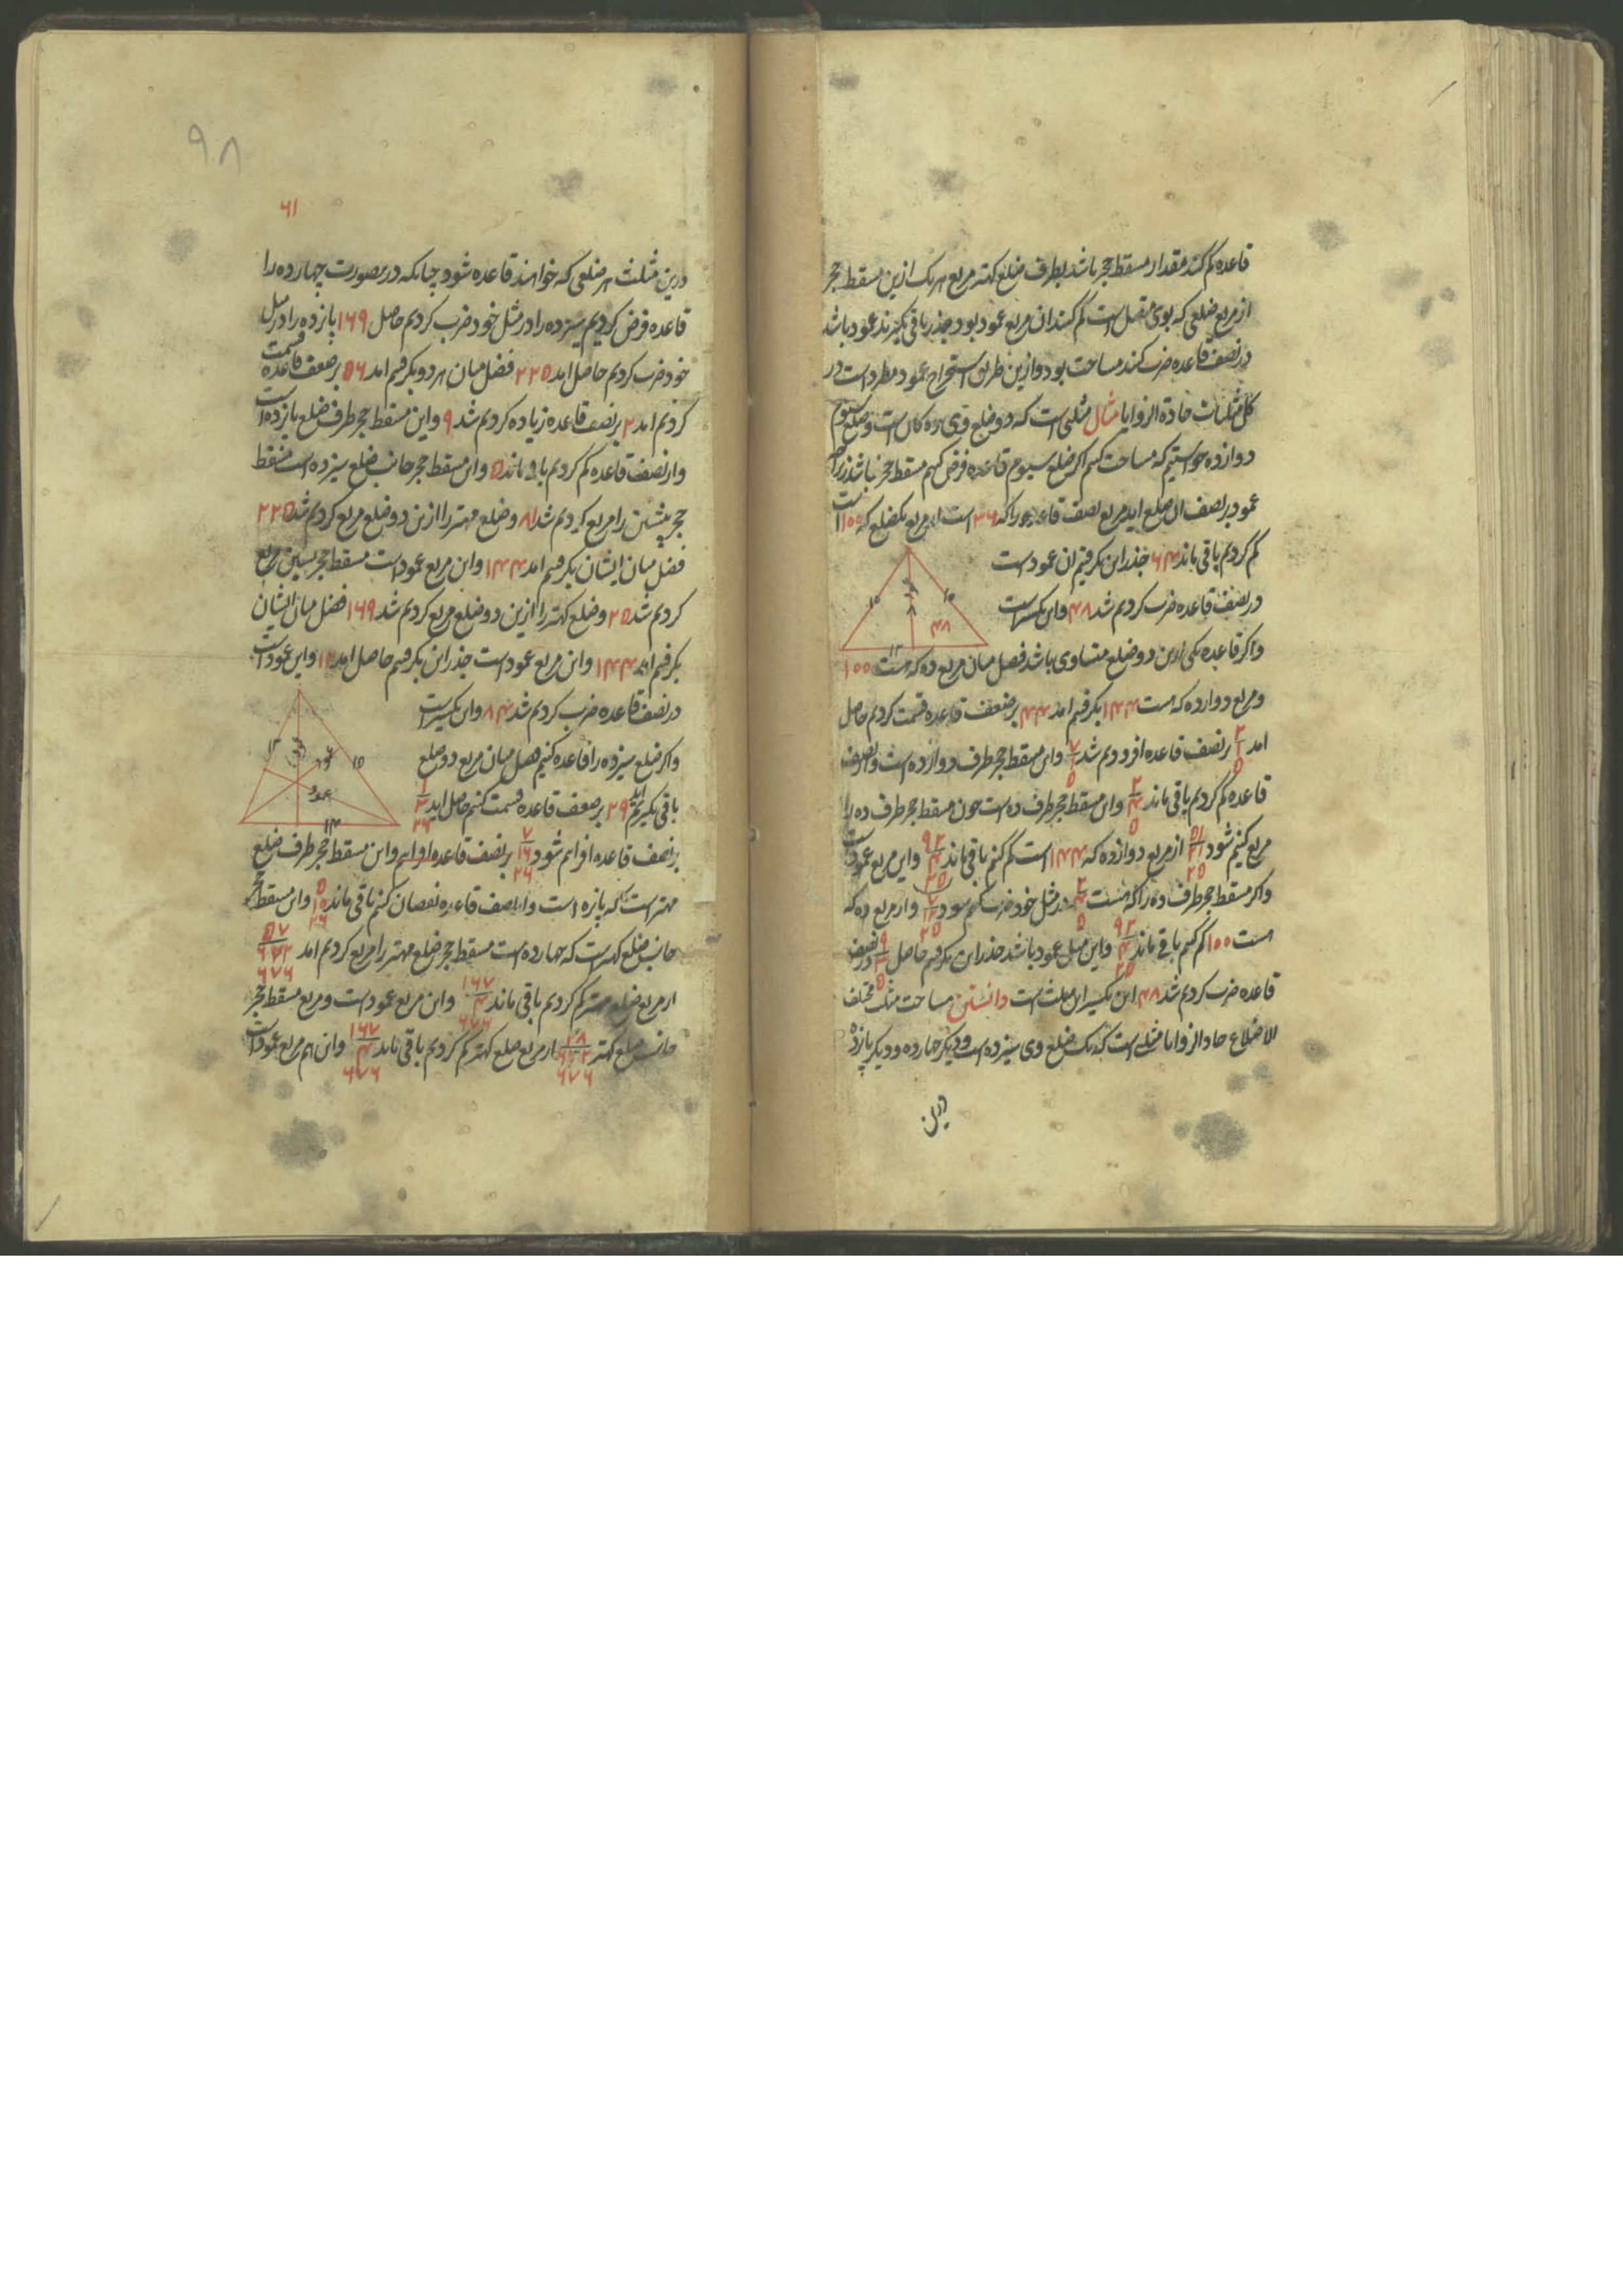 قاعده کم کنند مقدار مسقط حجر باشد بطرف ضلع کهتر مربع هر یک ازین مسقط حجر
از مربع ضلعی که بوی متصل است کم کنند ان مربع عمود بود جذر باقی بگیرند عمود باشد
در نصف قاعده ضرب کنند مساحت بود و ازین طریق استخراج عمود مطرد است در
کل مثلثات حادة الزوایا مثال مثلثی است که دو ضلع وی ده کان است و ضلع سیوم
دوازده خواستیم که مساحت کنیم اکر ضلع سیوم قاعده فرض کنیم مسقط حجر نباشد زیرا که
عمود بر نصف ان ضلع اید مربع نصف قاعده را که ۳۶ است از مربع یکضلع که ۱۰۰ است
کم کردیم باقی ماند ۶۴ جذر این بکرفتیم ان عمود است
۱۰ ۱۰ ۴۸ ۱۲
در نصف قاعده ضرب کردیم شد ۴۸ و این تکسیر است
و اکر قاعده یکی ازین دو ضلع متساوی باشد فضل میان مربع ده که هست ۱۰۰
و مربع دوازده که هست ۱۴۴ بکرفتیم امد ۴۴ بر ضعف قاعده قسمت کردیم حاصل
امد ۲ ۱ ۵ بر نصف قاعده افزودیم شد ۷ ۱ ۵ و این مسقط حجر طرف دوازده است و از نصف
قاعده کم کردیم باقی ماند ۲ ۴ ۵ و این مسقط حجر طرف ده است چون مسقط حجر طرف ده را
مربع کنیم شود ۵۱ ۲۱ ۲۵ از مربع دوازده که ۱۴۴ است کم کنیم باقی ماند ۹۲ ۴ ۲۵ و این مربع عمود است
و اکر مسقط حجر طرف ده را که هست ۲ ۴ ۵ در مثل خود ضرب کنیم شود ۷ ۲۱ ۲۵ و از مربع ده که
است ۱۰۰ کم کنیم باقی ماند ۹۲ ۴ ۲۵ و این مثل عمود باشد جذر این بکرفتیم حاصل ۹ ۳ ۵ در نصف
قاعده ضرب کردیم شد ۴۸ این تکسیر این مثلث است دانستن مساحت مثلث مختلف
الاضلاع حاد الزوایا مثلثی است که یک ضلع وی سیزده است و دیکر چهارده و دیکر پانزده
درین
۹۸
۶۱
درین مثلث هر ضلعی که خواهند قاعده شود چنانکه درین صورت چهارده را
قاعده فرض کردیم سیزده را در مثل خود ضرب کردیم حاصل ۱۶۹ پانزده را در مثل
خود ضرب کردیم حاصل امد ۲۲۵ فضل میان هر دو بکرفتیم امد ۵۶ بر ضعف قاعده قسمت
کردیم امد ۲ بر نصف قاعده زیاده کردیم شد ۹ و این مسقط حجر طرف ضلع پانزده است
و از نصف قاعده کم کردیم باقی ماند ۵ و این مسقط حجر جانب ضلع سیزده است مسقط
حجر پیشین را مربع کردیم شد ۸۱ و ضلع مهتر را ازین دو ضلع مربع کردیم شد ۲۲۵
فضل میان ایشان بکرفتیم امد ۱۴۴ و این مربع عمود است مسقط حجر پسین مربع
کردیم شد ۲۵ و ضلع کهتر را ازین دو ضلع مربع کردیم شد ۱۶۹ فضل میان ایشان
بکرفتیم امد ۱۴۴ و این مربع عمود است جذر این بکرفتیم حاصل امد ۱۲ و این عمود است
در نصف قاعده ضرب کردیم شد ۸۴ و این تکسیر است
۱۳ ۱۵ عمود ۱۴
و اکر ضلع سیزده را قاعده کنیم فضل میان مربع دو ضلع
باقی بکیریم اید ۲۹ بر ضعف قاعده قسمت کنیم حاصل اید ۱ ۳ ۲۶
بر نصف قاعده افزایم شود ۷ ۱۶ ۲۶ بر نصف قاعده و این مسقط حجر طرف ضلع
مهتر است که پانزده است و از نصف قاعده نقصان کنیم باقی ماند ۵ ۱۰ ۲۶ و این مسقط حجر
جانب ضلع کهتر است که چهارده است مسقط حجر ضلع مهتر را مربع کردیم امد ۵۷
از مربع ضلع مهتر کم کردیم باقی ماند ۱۶۷ ۴ ۶۷۶ و این مربع عمود است و مربع مسقط حجر
جانب ضلع کهتر ۲۸ ۶۷۶ از مربع ضلع کهتر کم کردیم باقی ماند ۱۶۷ ۴ ۶۷۶ و این هم مربع عمود است